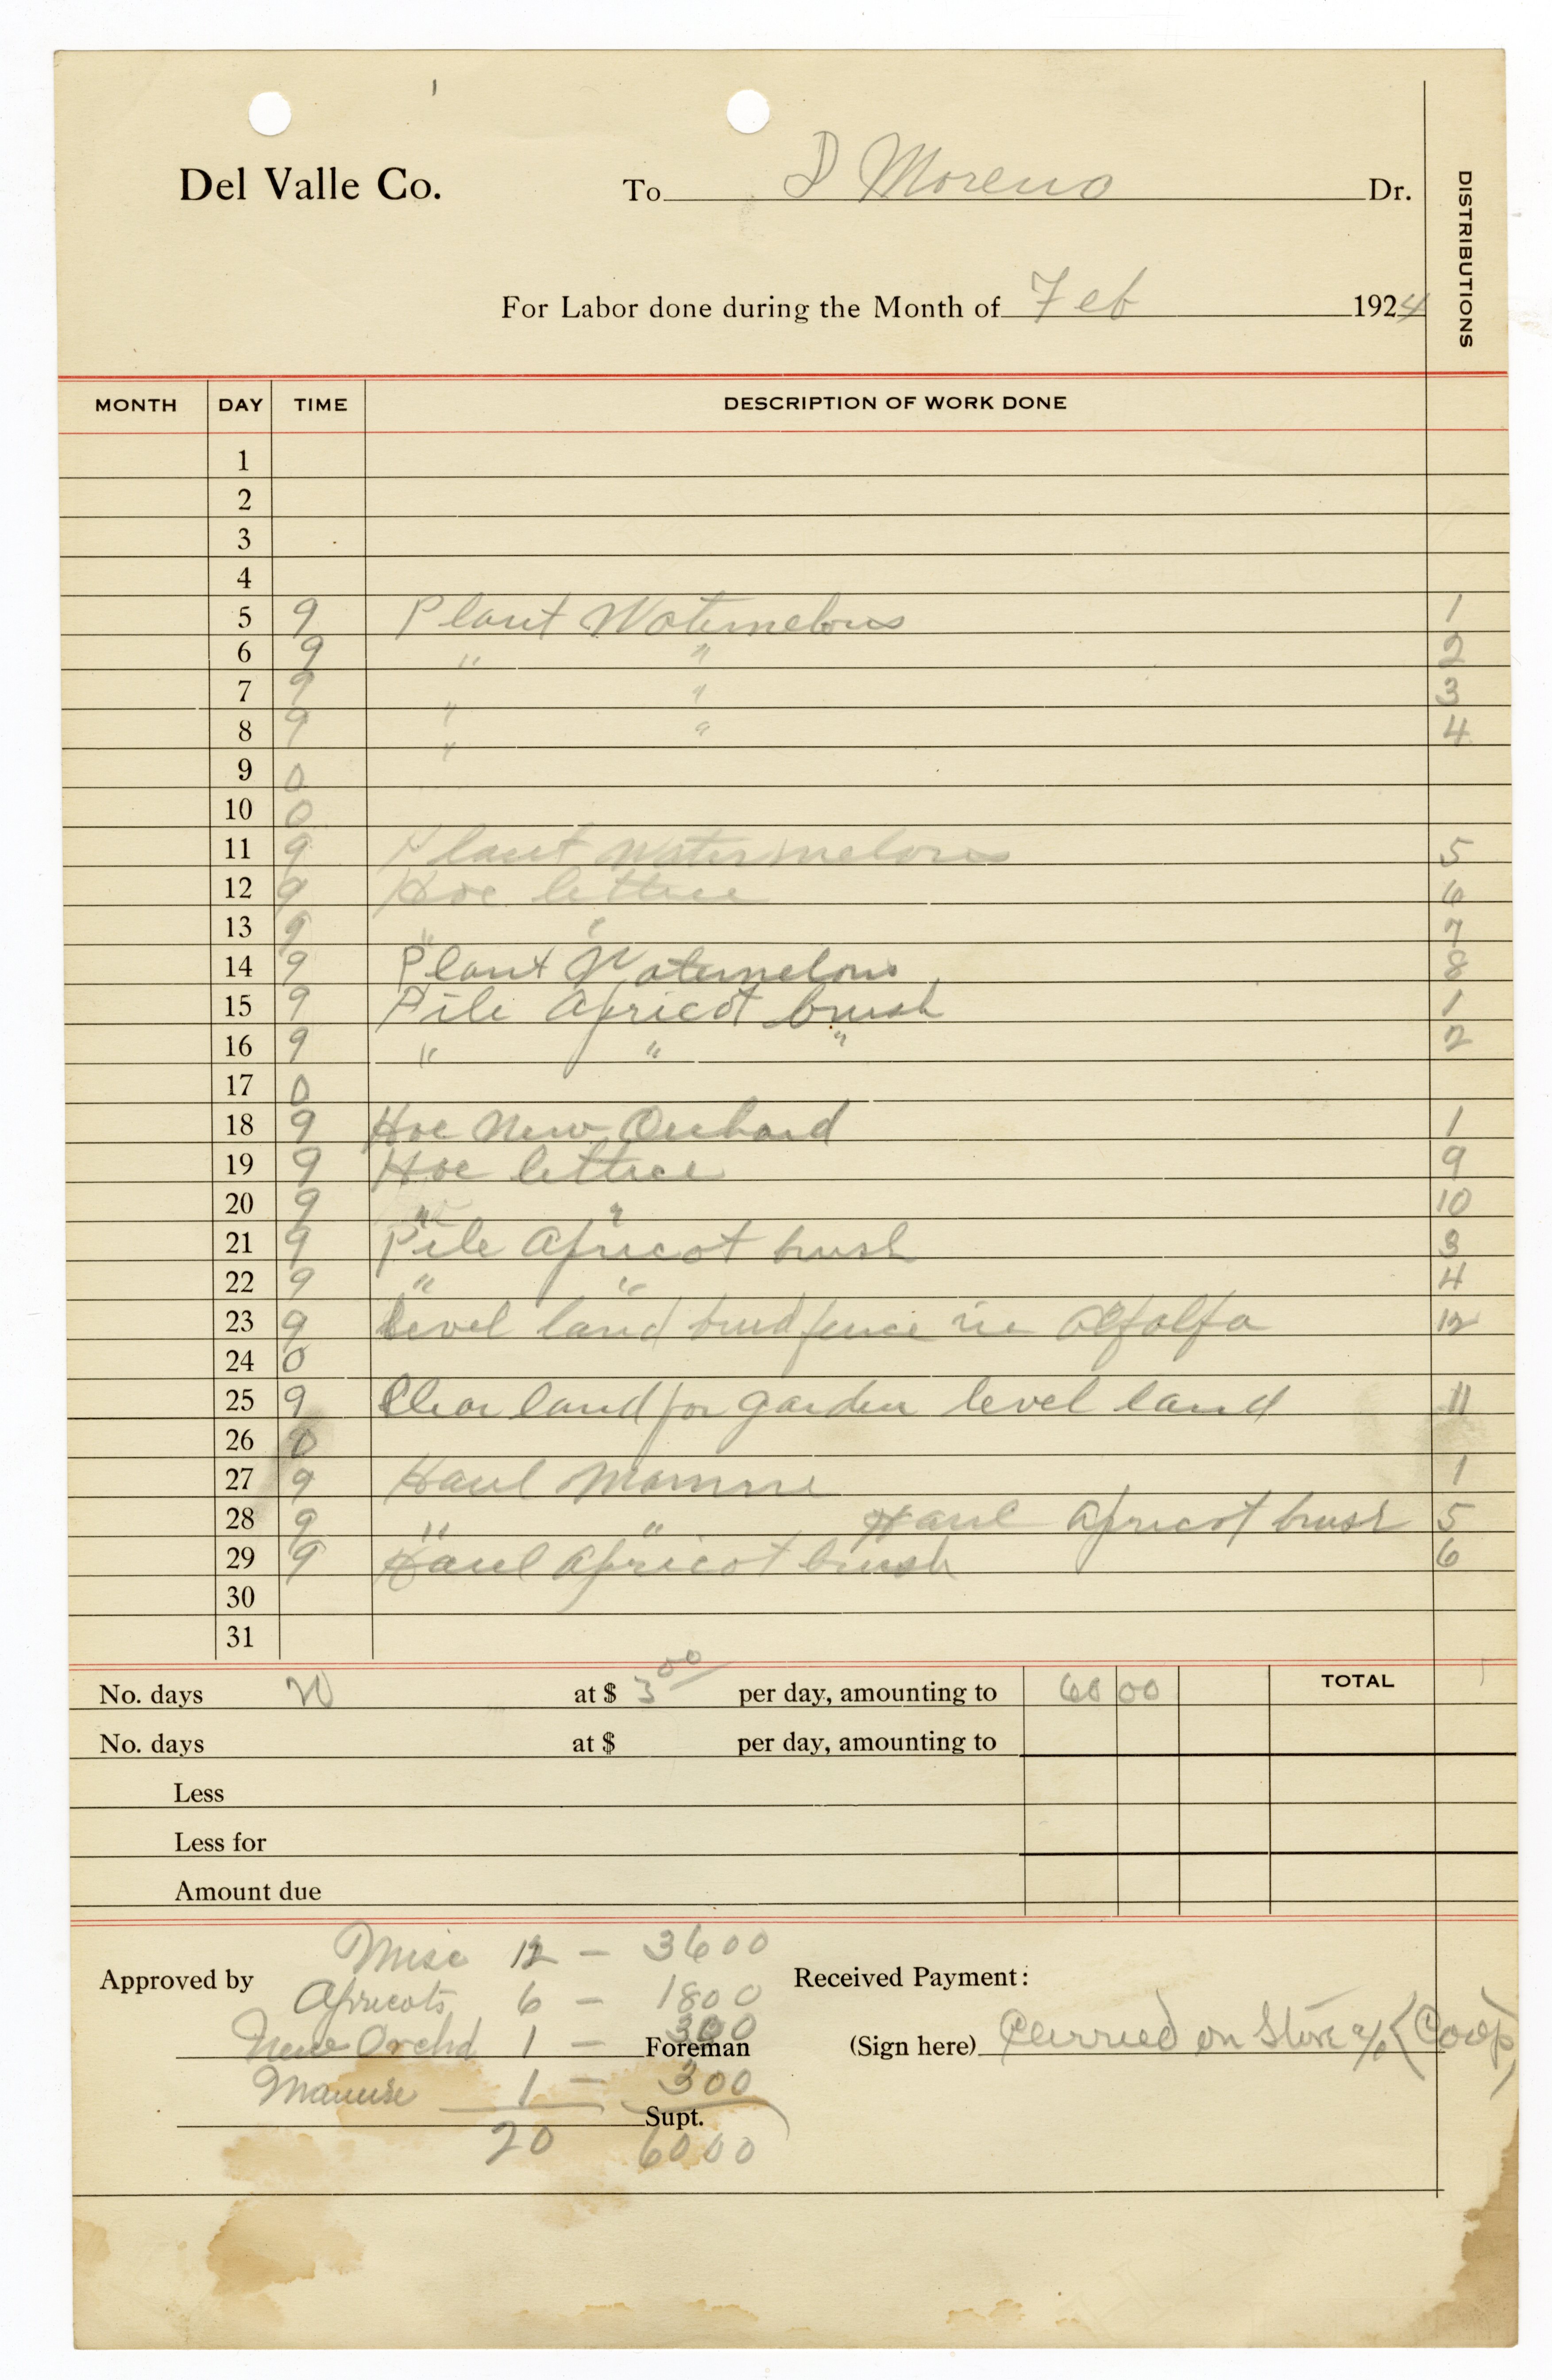 Del Valle Co. To D Moreno Dr.
DISTRIBUTIONS
For Labor done during the Month of Feb 1924
MONTH DAY TIME DESCRIPTION OF WORK DONE
1
2
3
4
5 9 Plant Watermelons 1
6 9 " " 2
7 9 " " 3
8 9 " " 4
9 0
10 0
11 9 Plant Watermelons 5
12 9 Hoe lettuce 6
13 9 " " 7
14 9 Plant Watermelons 8
15 9 Pile Apricot brush 1
16 9 " " " 2
17 0
18 9 Hoe New Orchard 1
19 9 Hoe lettuce 9
20 9 " " 10
21 9 Pile Apricot brush 3
22 9 " " 4
23 9 Level land fence in Alfalfa 12
24 0
25 9 Clear land for garden level land 11
26 0
27 9 Haul Manure 1
28 9 " " Haul Apricot brush 5
29 9 Haul Apricot brush 6
30
31
No. days 20 at $ 3 00 per day, amounting to 60 00 TOTAL
No. days at $ per day, amounting to
Less
Less for
Amount due
Misc 12 — 3600
Approved by Received Payment:
Apricots 6 — 1800
New Orchd 1 — 300
Foreman (Sign here) Carried on Store a/c (Coop)
Manure 1 — 300
Supt.
20 6000